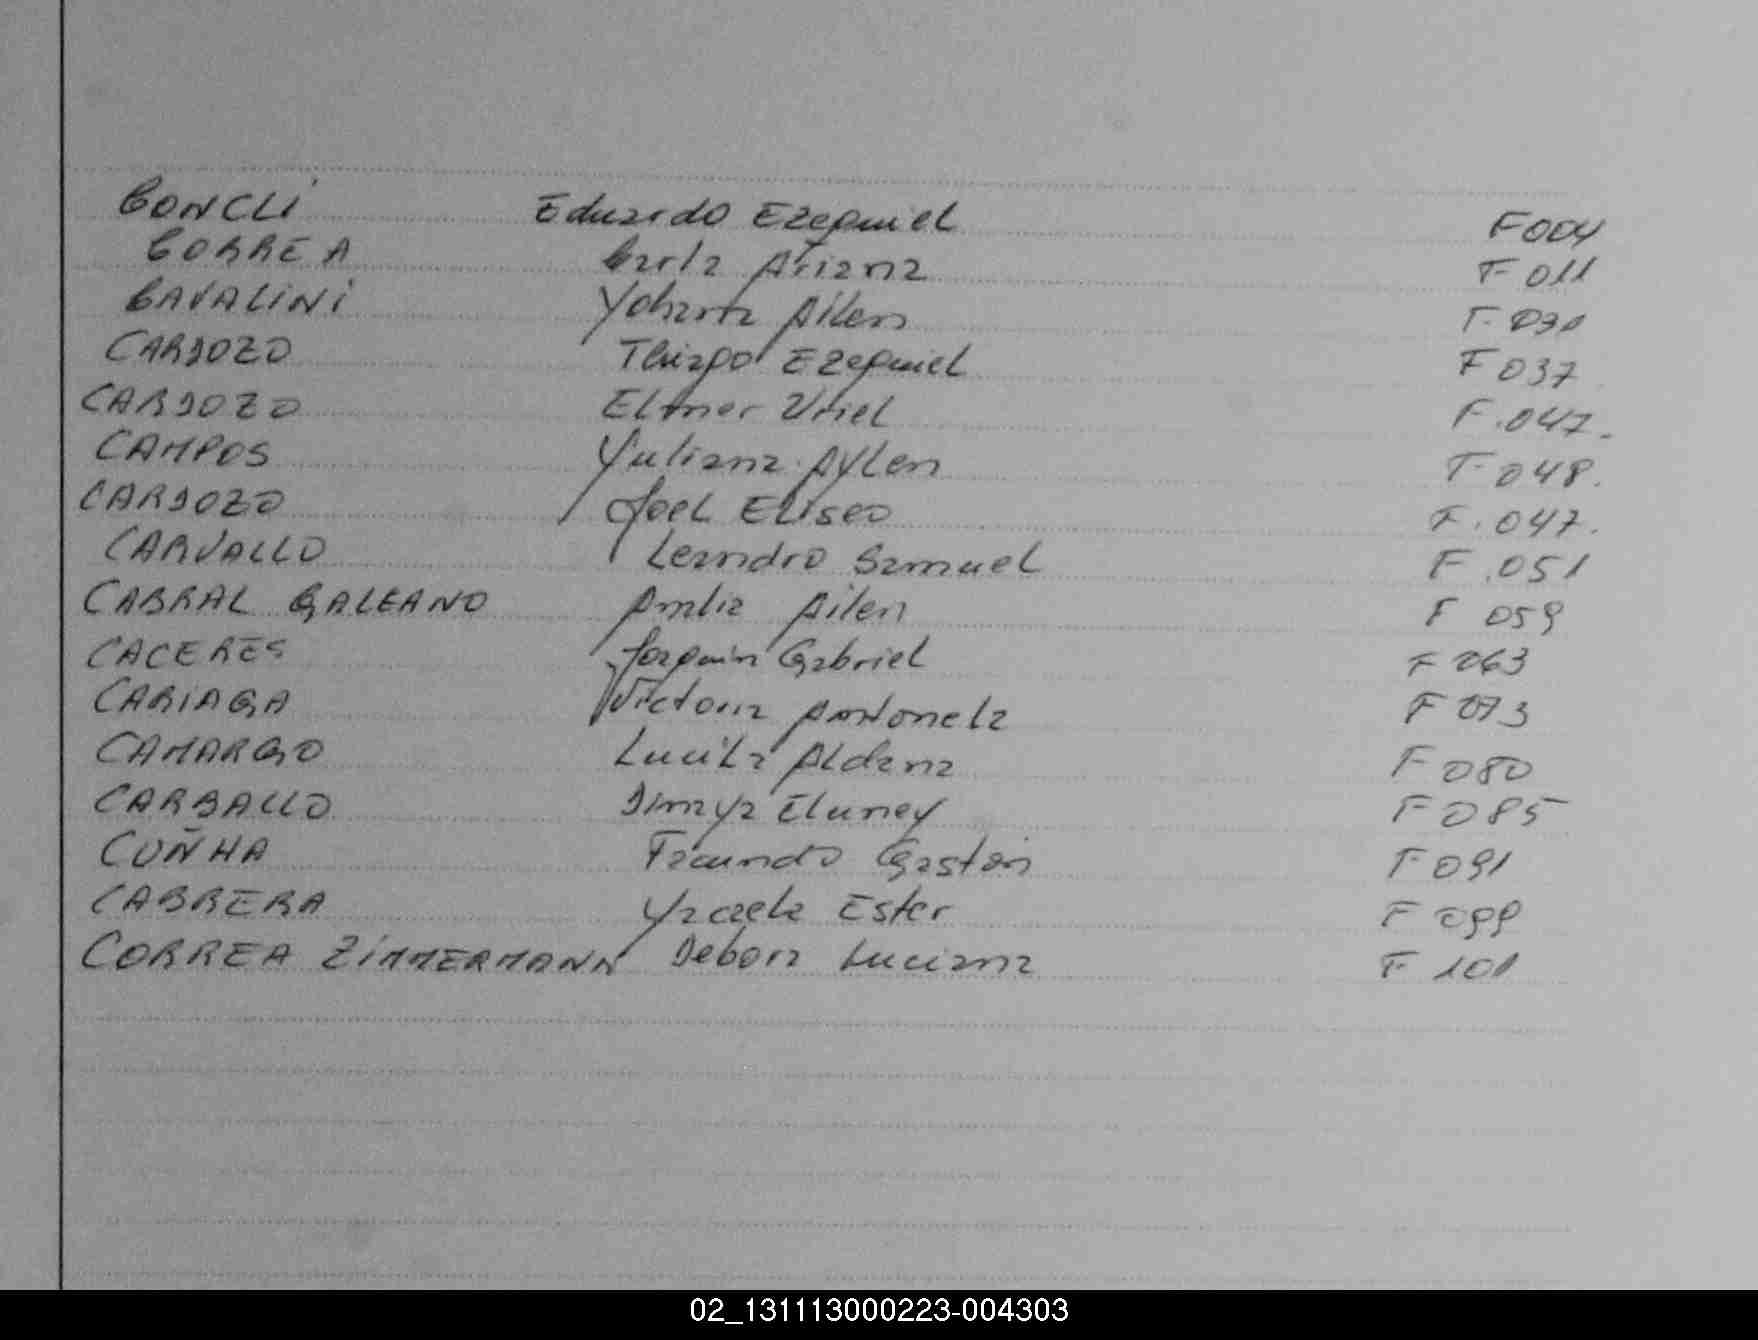 CONCLI Eduardo Ezequiel F004
CORREA Carla Ariana F 011
CAVALINI Yohana Ailen F.
CARDOZO Thiago Ezequiel F 037
CARDOZO Elmer Uriel F.047.
CAMPOS Yuliana Aylen F 048.
CARDOZO Joel Eliseo F.047.
CARVALLO Leandro Samuel F.051
CABRAL GALEANO Ailen F 059
CACERES Joaquin Gabriel F 063
CARIAGA Victoria Antonela F 073
CAMARGO Lucila Aldana F 080
CARBALLO Dimaya Eluney F 085
CUÑHA Facundo Gastón F 091
CABRERA Yacaela Ester F 099
CORREA ZIMMERMANN Debora Luciana F 101
02_131113000223-004303